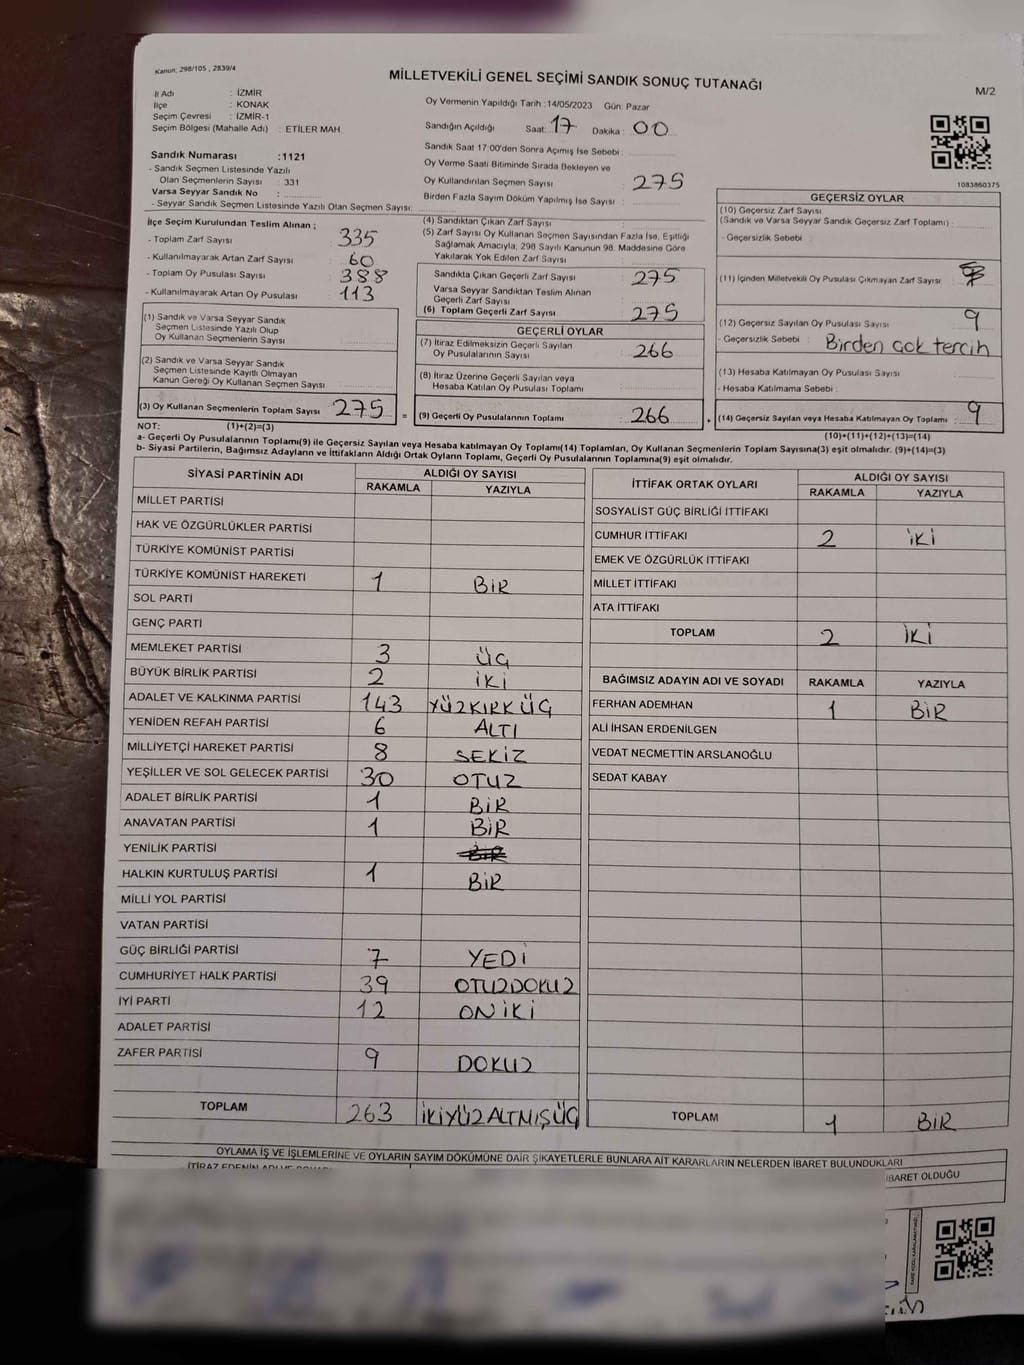 Kanun: 298/105, 2839/4
MİLLETVEKİLİ GENEL SEÇİMİ SANDIK SONUÇ TUTANAĞI
M/2
İl Adı : İZMİR
İlçe : KONAK
Seçim Çevresi : İZMİR-1
Seçim Bölgesi (Mahalle Adı) : ETİLER MAH.
Oy Vermenin Yapıldığı Tarih :14/05/2023 Gün: Pazar
Sandığın Açıldığı Saat: 17 Dakika : 00
Sandık Saat 17:00'den Sonra Açımış İse Sebebi :
Oy Verme Saati Bitiminde Sırada Bekleyen ve
Oy Kullandırılan Seçmen Sayısı : 275
Birden Fazla Sayım Döküm Yapılmış İse Sayısı :
1083860375
Sandık Numarası :1121
- Sandık Seçmen Listesinde Yazılı
Olan Seçmenlerin Sayısı : 331
Varsa Seyyar Sandık No :
- Seyyar Sandık Seçmen Listesinde Yazılı Olan Seçmen Sayısı:
İlçe Seçim Kurulundan Teslim Alınan ;
- Toplam Zarf Sayısı : 335
- Kullanılmayarak Artan Zarf Sayısı : 60
- Toplam Oy Pusulası Sayısı : 388
- Kullanılmayarak Artan Oy Pusulası : 113
(1) Sandık ve Varsa Seyyar Sandık
Seçmen Listesinde Yazılı Olup
Oy Kullanan Seçmenlerin Sayısı :
(2) Sandık ve Varsa Seyyar Sandık
Seçmen Listesinde Kayıtlı Olmayan
Kanun Gereği Oy Kullanan Seçmen Sayısı
(3) Oy Kullanan Seçmenlerin Toplam Sayısı : 275 =
(4) Sandıktan Çıkan Zarf Sayısı :
(5) Zarf Sayısı Oy Kullanan Seçmen Sayısından Fazla İse, Eşitliği
Sağlamak Amacıyla, 298 Sayılı Kanunun 98. Maddesine Göre
Yakılarak Yok Edilen Zarf Sayısı :
Sandıkta Çıkan Geçerli Zarf Sayısı : 275
Varsa Seyyar Sandıktan Teslim Alınan
Geçerli Zarf Sayısı
(6) Toplam Geçerli Zarf Sayısı : 275
GEÇERLİ OYLAR
(7) İtiraz Edilmeksizin Geçerli Sayılan
Oy Pusulalarının Sayısı : 266
(8) İtiraz Üzerine Geçerli Sayılan veya
Hesaba Katılan Oy Pusulası Toplamı
(9) Geçerli Oy Pusulalarının Toplamı : 266 +
GEÇERSİZ OYLAR
(10) Geçersiz Zarf Sayısı
(Sandık ve Varsa Seyyar Sandık Geçersiz Zarf Toplamı) :
- Geçersizlik Sebebi :
(11) İçinden Milletvekili Oy Pusulası Çıkmayan Zarf Sayısı :
(12) Geçersiz Sayılan Oy Pusulası Sayısı : 9
- Geçersizlik Sebebi : Birden Çok tercih
(13) Hesaba Katılmayan Oy Pusulası Sayısı :
- Hesaba Katılmama Sebebi :
(14) Geçersiz Sayılan veya Hesaba Katılmayan Oy Toplamı : 9
NOT: (1)+(2)=(3)
(10)+(11)+(12)+(13)=(14)
a- Geçerli Oy Pusulalarının Toplamı(9) ile Geçersiz Sayılan veya Hesaba katılmayan Oy Toplamı(14) Toplamları, Oy Kullanan Seçmenlerin Toplam Sayısına(3) eşit olmalıdır. (9)+(14)=(3)
b- Siyasi Partilerin, Bağımsız Adayların ve İttifakların Aldığı Ortak Oyların Toplamı, Geçerli Oy Pusulalarının Toplamına(9) eşit olmalıdır.
SİYASİ PARTİNİN ADI ALDIĞI OY SAYISI
RAKAMLA YAZIYLA
MİLLET PARTİSİ
HAK VE ÖZGÜRLÜKLER PARTİSİ
TÜRKİYE KOMÜNİST PARTİSİ
TÜRKİYE KOMÜNİST HAREKETİ 1 BİR
SOL PARTİ
GENÇ PARTİ
MEMLEKET PARTİSİ 3 ÜÇ
BÜYÜK BİRLİK PARTİSİ 2 İKİ
ADALET VE KALKINMA PARTİSİ 143 YÜZKIRKÜÇ
YENİDEN REFAH PARTİSİ 6 ALTI
MİLLİYETÇİ HAREKET PARTİSİ 8 SEKİZ
YEŞİLLER VE SOL GELECEK PARTİSİ 30 OTUZ
ADALET BİRLİK PARTİSİ 1 BİR
ANAVATAN PARTİSİ 1 BİR
YENİLİK PARTİSİ BİR
HALKIN KURTULUŞ PARTİSİ 1 BİR
MİLLİ YOL PARTİSİ
VATAN PARTİSİ
GÜÇ BİRLİĞİ PARTİSİ 7 YEDİ
CUMHURİYET HALK PARTİSİ 39 OTUZDOKUZ
İYİ PARTİ 12 ONİKİ
ADALET PARTİSİ
ZAFER PARTİSİ 9 DOKUZ
TOPLAM 263 İKİYÜZALTMIŞÜÇ
İTTİFAK ORTAK OYLARI ALDIĞI OY SAYISI
RAKAMLA YAZIYLA
SOSYALİST GÜÇ BİRLİĞİ İTTİFAKI
CUMHUR İTTİFAKI 2 İKİ
EMEK VE ÖZGÜRLÜK İTTİFAKI
MİLLET İTTİFAKI
ATA İTTİFAKI
TOPLAM 2 İKİ
BAĞIMSIZ ADAYIN ADI VE SOYADI RAKAMLA YAZIYLA
FERHAN ADEMHAN 1 BİR
ALİ İHSAN ERDENİLGEN
VEDAT NECMETTİN ARSLANOĞLU
SEDAT KABAY
TOPLAM 1 BİR
OYLAMA İŞ VE İŞLEMLERİNE VE OYLARIN SAYIM DÖKÜMÜNE DAİR ŞİKAYETLERLE BUNLARA AİT KARARLARIN NELERDEN İBARET BULUNDUKLARI
İBARET OLDUĞU